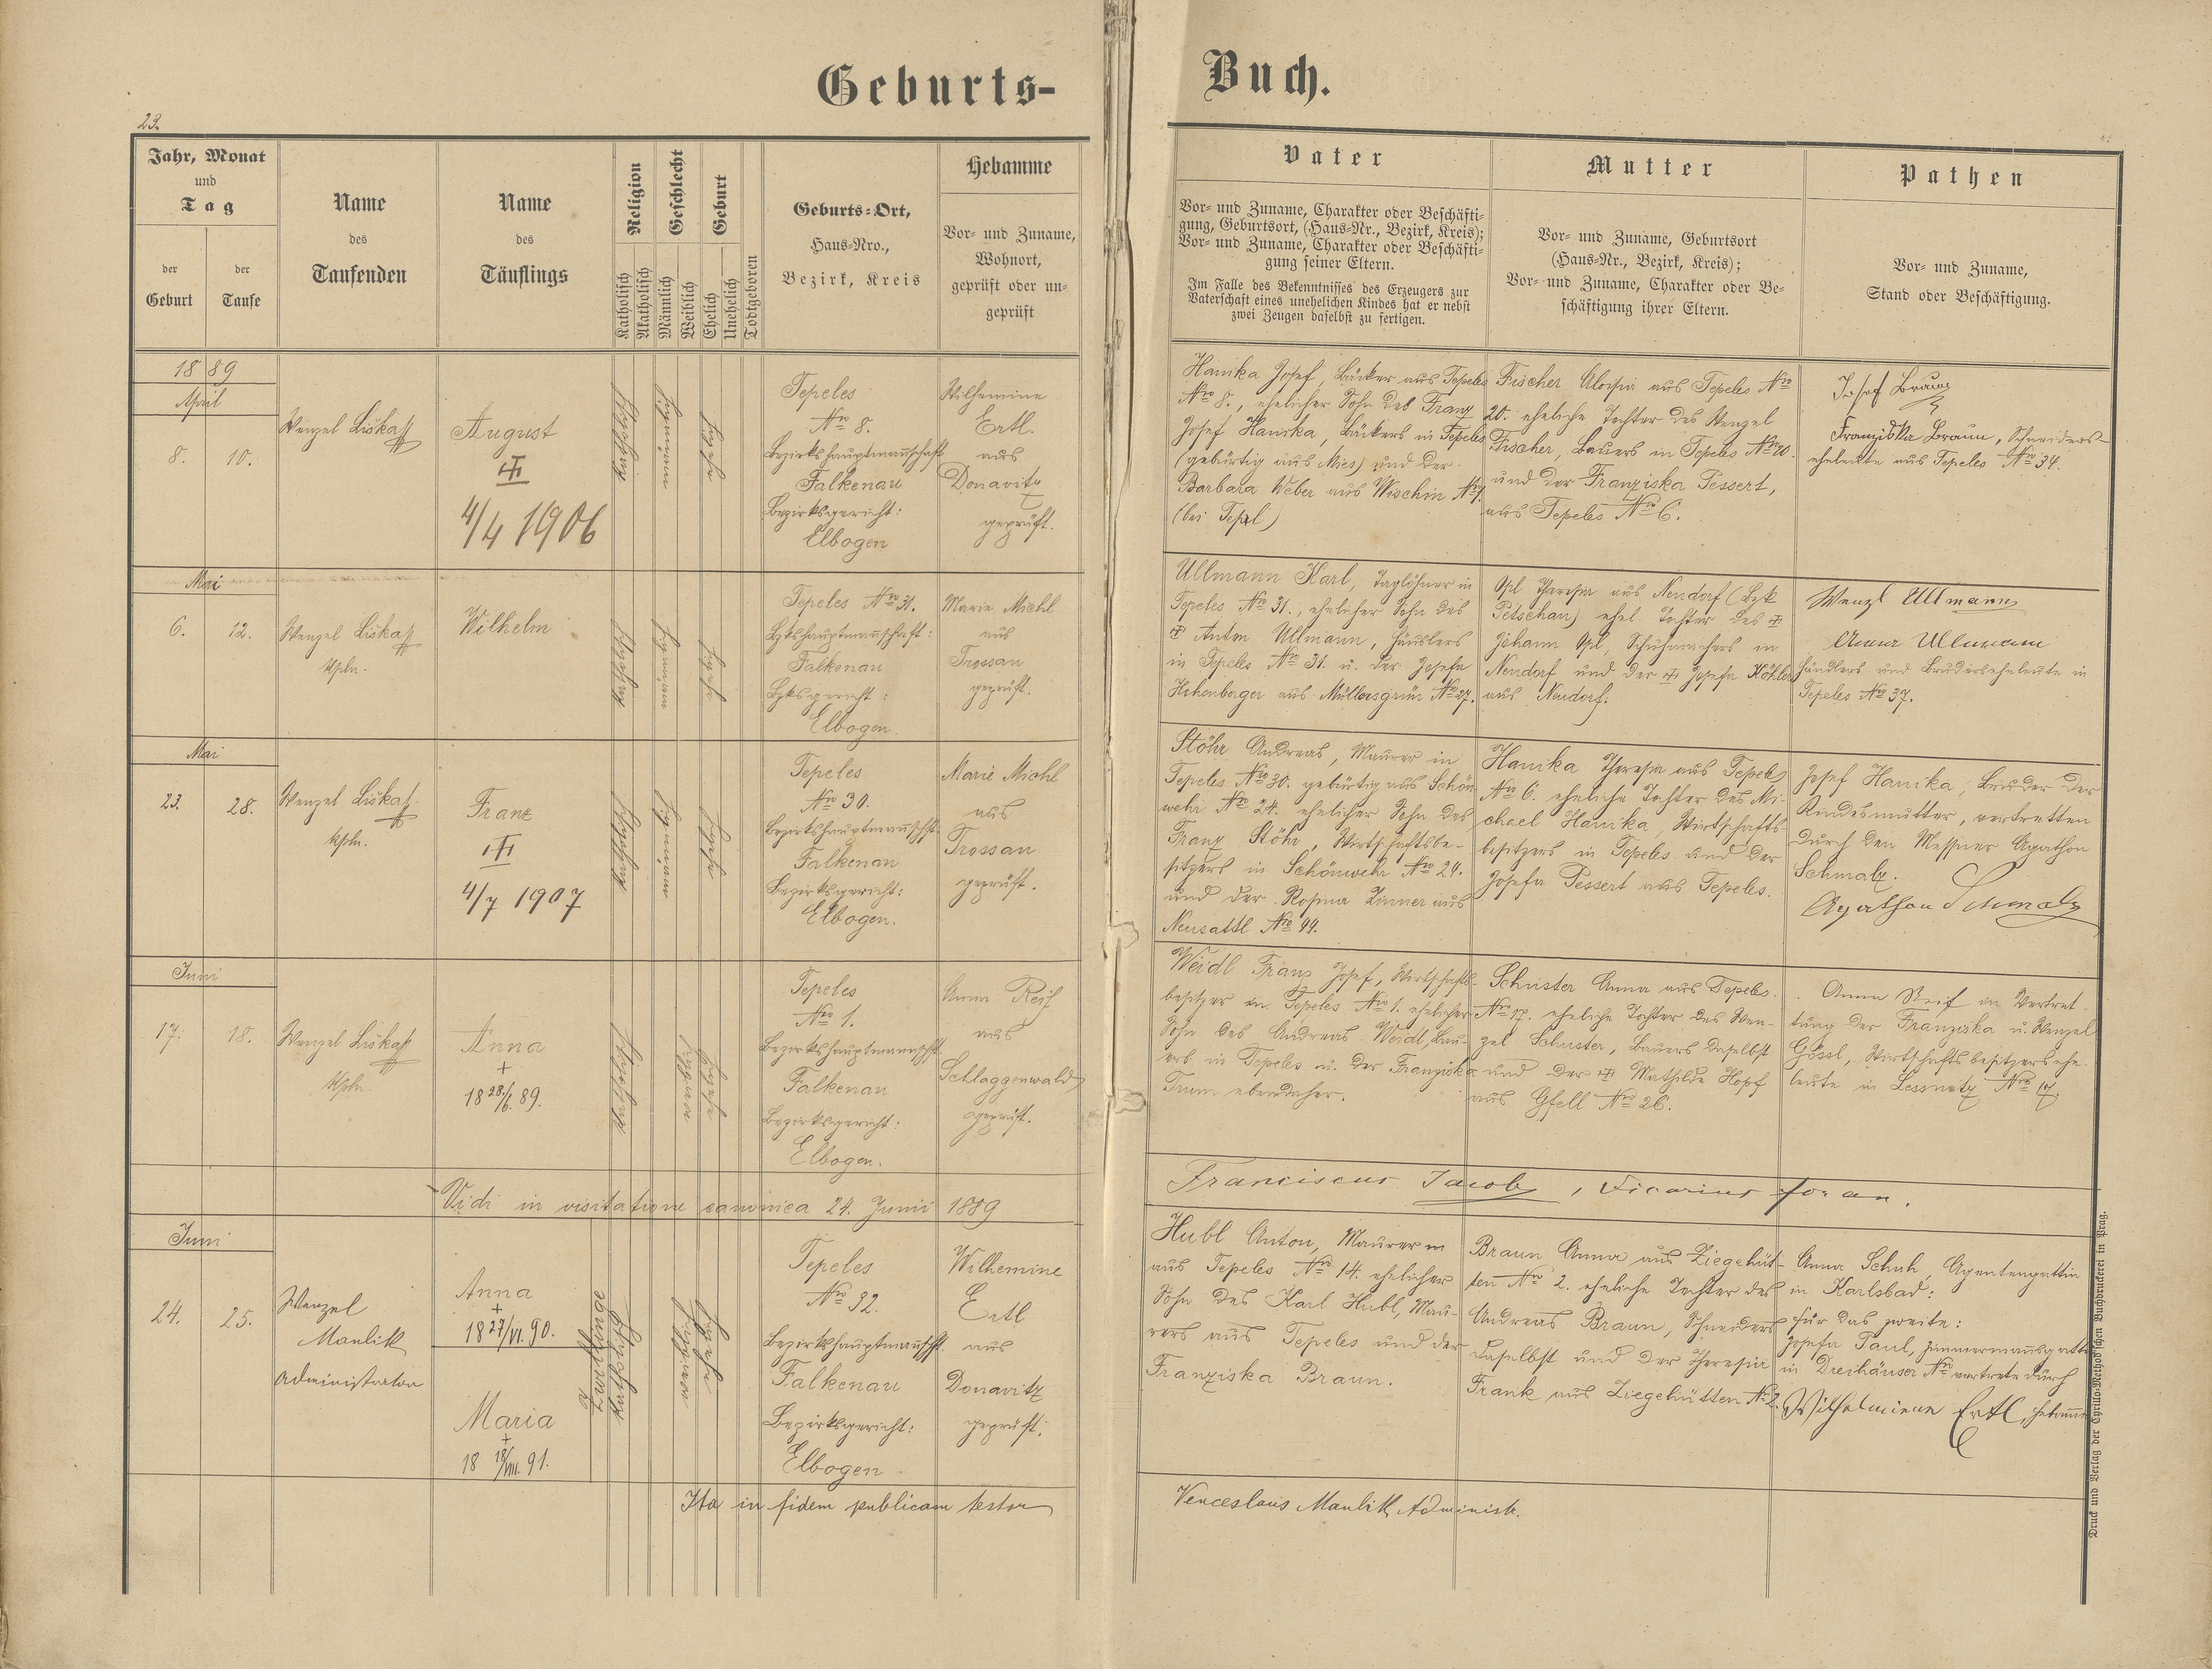 Geburts-
Buch.
23.
Jahr, Monat
und
Tag
der
Geburt
der
Taufe
Name
des
Taufenden
Name
des
Täuflings
Religion
Geschlecht
Geburt
Katholisch
Akatholisch
Männlich
Weiblich
Ehelich
Unehelich
Todtgeboren
Geburts-Ort,
Haus-Nro.,
Bezirk, Kreis
Hebamme
Vor- und Zuname,
Wohnort,
geprüft oder un-
geprüft
Vater
Vor- und Zuname, Charakter oder Beschäfti-
gung, Geburtsort, (Haus-Nr., Bezirk, Kreis);
Vor- und Zuname, Charakter oder Beschäfti-
gung seiner Eltern.
Im Falle des Bekenntnisses des Erzeugers zur
Vaterschaft eines unehelichen Kindes hat er nebst
zwei Zeugen daselbst zu fertigen.
Mutter
Vor- und Zuname, Geburtsort
(Haus-Nr., Bezirk, Kreis);
Vor- und Zuname, Charakter oder Be-
schäftigung ihrer Eltern.
Pathen
Vor- und Zuname,
Stand oder Beschäftigung.
1889
April
8.
10.
Wenzel Liška
August
4/4 1906
katholisch
männlich
ehelich
Tepeles
Nro 8.
Bezirkshauptmannschaft
Falkenau
Bezirksgericht:
Elbogen
Wilhemine
Ertl.
aus
Donavitz
geprüft.
Hanika Josef, Bäcker aus Tepeles
Nro 8., ehelicher Sohn des Franz
Josef Hanika, Bäckers in Tepeles
(gebürtig aus Mies) und der
Barbara Weber aus Wischin Nro 7.
(bei Tepl)
Fischer Aloisia aus Tepeles Nro
20. eheliche Tochter des Wenzel
Fischer, Bauers in Tepeles Nro 20.
und der Franziska Pessert,
aus Tepeles Nro 6.
Josef Braun
Franziska Braun, Schneiders-
eheleute aus Tepeles Nro 34.
Mai
6.
12.
Wenzel Liška
Kpln.
Wilhelm
katholisch
männlich
ehelich
Tepeles Nro 31.
Bzkshauptmannschaft:
Falkenau
Bzksgericht:
Elbogen
Marie Michl
aus
Trossau
geprüft.
Ullmann Karl, Taglöhner in
Tepeles Nro 31., ehelicher Sohn des
Anton Ullmann, Häuslers
in Tepeles Nro 31. u. der Josefa
Hohenberger aus Müllersgrün Nro 27.
Opl Theresia aus Neudorf (Bzk
Petschau) ehel. Tochter des
Johann Opl, Schuhmachers in
Neudorf und der Josefa Köhler
aus Neudorf.
Wenzl Ullmann
Anna Ullmann
Händlers und Bruderseheleute in
Tepeles Nro 37.
Mai
23.
28.
Wenzel Liška
kpln.
Franz
4/7 1907
katholisch
männlich
ehelich
Tepeles
Nro 30.
Bezirkshauptmannschft.
Falkenau
Bezirksgericht:
Elbogen.
Marie Michl
aus
Trossau
geprüft.
Stöhr Andreas, Maurer in
Tepeles Nro 30. gebürtig aus Schön-
wehr Nro 24. ehelicher Sohn des
Franz Stöhr, Wirtschaftsbe-
sitzers in Schönwehr Nro 24.
und der Rosina Zinner aus
Neusattl Nro 44.
Hanika Theresia aus Tepeles
Nro 6. eheliche Tochter des Mi-
chael Hanika, Wirtschafts-
besitzers in Tepeles und der
Josefa Pessert aus Tepeles.
Josef Hanika, Bruder der
Kindesmutter, vertretten
durch den Messner Agathon
Schmalz.
Agathon Schmalz
Juni
17.
18.
Wenzel Liška
Kpln.
Anna
+
18 28/6. 89.
katholisch
weiblich
ehelich
Tepeles
Nro 1.
Bezirkshauptmannschft.
Falkenau
Bezirksgericht:
Elbogen.
Anna Reif
aus
Schlaggenwald
geprüft.
Weidl Franz Josef, Wirtschafts-
besitzer in Tepeles Nro 1. ehelicher
Sohn des Andreas Weidl, Bau-
ers in Tepeles u. der Franziska
Trum ebendaher.
Schuster Anna aus Tepeles.
Nro 17. eheliche Tochter des Wen-
zel Schuster, Bauers daselbst
und der Mathilde Hopf
aus Gfell Nro 26.
Anna Reif in Vertret-
tung der Franziska u. Wenzel
Gössl, Wirtschaftsbesitzersehe-
leute in Lessnitz Nro 17.
Vidi in visitatione canonica 24. Junii 1889
Franciscus Jacob, Vicarius foran.
Juni
24.
25.
Wenzel
Maulik
Administrator
Anna
+
18 27/VI. 90.
Maria
+
18 18/VIII. 91.
Zwillinge
katholisch
weiblich
ehelich
Tepeles
Nro 32.
Bezirkshauptmannschft.
Falkenau
Bezirksgericht:
Elbogen
Wilhemine
Ertl
aus
Donavitz
geprüft.
Hubl Anton, Maurer in
aus Tepeles Nro 14. ehelicher
Sohn des Karl Hubl, Mau-
rers aus Tepeles und der
Franziska Braun.
Braun Anna aus Ziegehüt-
ten Nro 2. eheliche Tochter des
Andreas Braun, Schneiders
daselbst und der Theresia
Frank aus Ziegehütten Nro 2.
Anna Schuh, Agentengattin
in Karlsbad:
für das zweite:
Josefa Paul, Zimmermannsgattin
in Dreihäuser Nro vertrete durch
Wilhelmiene Ertl, Hebamme
Ita in fidem publicam testor
Venceslaus Maulik Administr.
Druck und Verlag der Cyrillo-Method'schen Buchdruckerei in Prag.